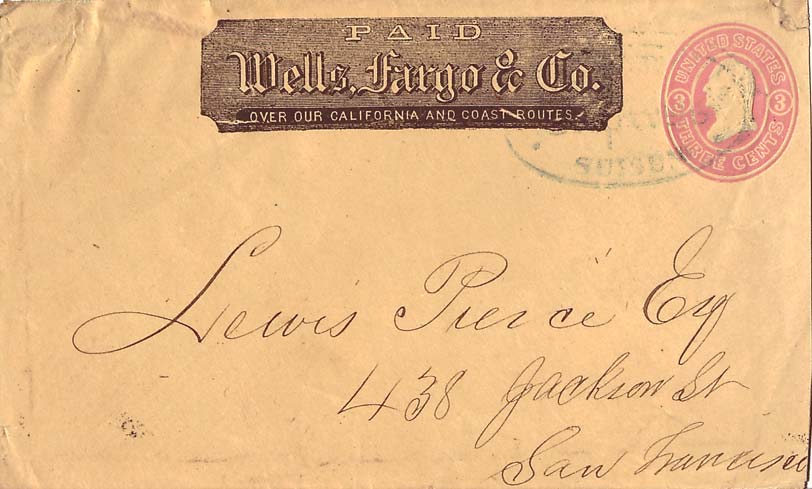 PAID
Wells, Fargo & Co.
OVER OUR CALIFORNIA AND COAST ROUTES.
UNITED STATES
3 3
THREE CENTS
SUISUN
Lewis Pierce Esq
438 Jackson St
San Francisco